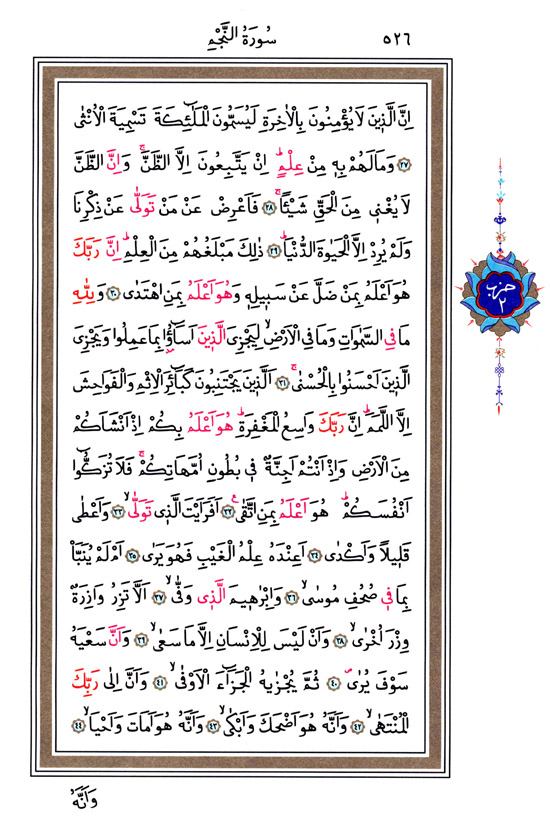 ٥٢٦ سُورَةُ النَّجْمِ
اِنَّ الَّذ۪ينَ لَا يُؤْمِنُونَ بِالْاٰخِرَةِ لَيُسَمُّونَ الْمَلٰٓئِكَةَ تَسْمِيَةَ الْاُنْثٰى
﴿٢٧﴾ وَمَا لَهُمْ بِه۪ مِنْ عِلْمٍۜ اِنْ يَتَّبِعُونَ اِلَّا الظَّنَّۚ وَاِنَّ الظَّنَّ
لَا يُغْن۪ي مِنَ الْحَقِّ شَيْـًٔاۚ ﴿٢٨﴾ فَاَعْرِضْ عَنْ مَنْ تَوَلّٰى عَنْ ذِكْرِنَا
وَلَمْ يُرِدْ اِلَّا الْحَيٰوةَ الدُّنْيَاۜ ﴿٢٩﴾ ذٰلِكَ مَبْلَغُهُمْ مِنَ الْعِلْمِۜ اِنَّ رَبَّكَ
هُوَ اَعْلَمُ بِمَنْ ضَلَّ عَنْ سَب۪يلِه۪ وَهُوَ اَعْلَمُ بِمَنِ اهْتَدٰى ﴿٣٠﴾ وَلِلّٰهِ
مَا فِي السَّمٰوَاتِ وَمَا فِي الْاَرْضِۙ لِيَجْزِيَ الَّذ۪ينَ اَسَٓاؤُ۫ا بِمَا عَمِلُوا وَيَجْزِيَ
الَّذ۪ينَ اَحْسَنُوا بِالْحُسْنٰىۚ ﴿٣١﴾ اَلَّذ۪ينَ يَجْتَنِبُونَ كَبَٓائِرَ الْاِثْمِ وَالْفَوَاحِشَ
اِلَّا اللَّمَمَۜ اِنَّ رَبَّكَ وَاسِعُ الْمَغْفِرَةِۜ هُوَ اَعْلَمُ بِكُمْ اِذْ اَنْشَاَكُمْ
مِنَ الْاَرْضِ وَاِذْ اَنْتُمْ اَجِنَّةٌ ف۪ي بُطُونِ اُمَّهَاتِكُمْۚ فَلَا تُزَكُّٓوا
اَنْفُسَكُمْۜ هُوَ اَعْلَمُ بِمَنِ اتَّقٰى۟ ﴿٣٢﴾ اَفَرَاَيْتَ الَّذ۪ي تَوَلّٰىۙ ﴿٣٣﴾ وَاَعْطٰى
قَل۪يلًا وَاَكْدٰى ﴿٣٤﴾ اَعِنْدَهُ عِلْمُ الْغَيْبِ فَهُوَ يَرٰى ﴿٣٥﴾ اَمْ لَمْ يُنَبَّأْ
بِمَا ف۪ي صُحُفِ مُوسٰىۙ ﴿٣٦﴾ وَاِبْرٰه۪يمَ الَّذ۪ي وَفّٰىۙ ﴿٣٧﴾ اَلَّا تَزِرُ وَازِرَةٌ
وِزْرَ اُخْرٰىۙ ﴿٣٨﴾ وَاَنْ لَيْسَ لِلْاِنْسَانِ اِلَّا مَا سَعٰىۙ ﴿٣٩﴾ وَاَنَّ سَعْيَهُ
سَوْفَ يُرٰىۖ ﴿٤٠﴾ ثُمَّ يُجْزٰيهُ الْجَزَٓاءَ الْاَوْفٰىۙ ﴿٤١﴾ وَاَنَّ اِلٰى رَبِّكَ
الْمُنْتَهٰىۙ ﴿٤٢﴾ وَاَنَّهُ هُوَ اَضْحَكَ وَاَبْكٰىۙ ﴿٤٣﴾ وَاَنَّهُ هُوَ اَمَاتَ وَاَحْيَاۙ ﴿٤٤﴾
وَاَنَّهُ
حزب ٢